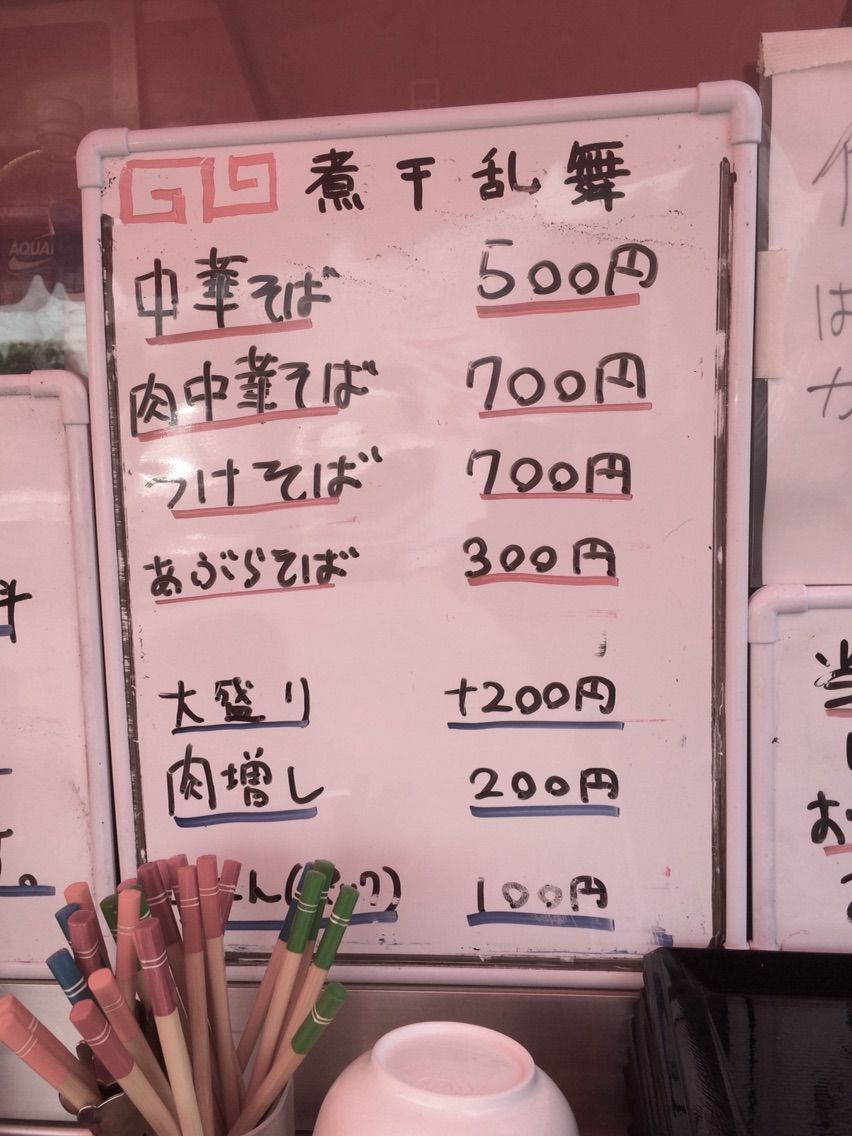 煮干乱舞
中華そば 500円
肉中華そば 700円
つけそば 700円
あぶらそば 300円
大盛り +200円
肉増し 200円
100円
AQUA
は
カ
料
す。
当
お